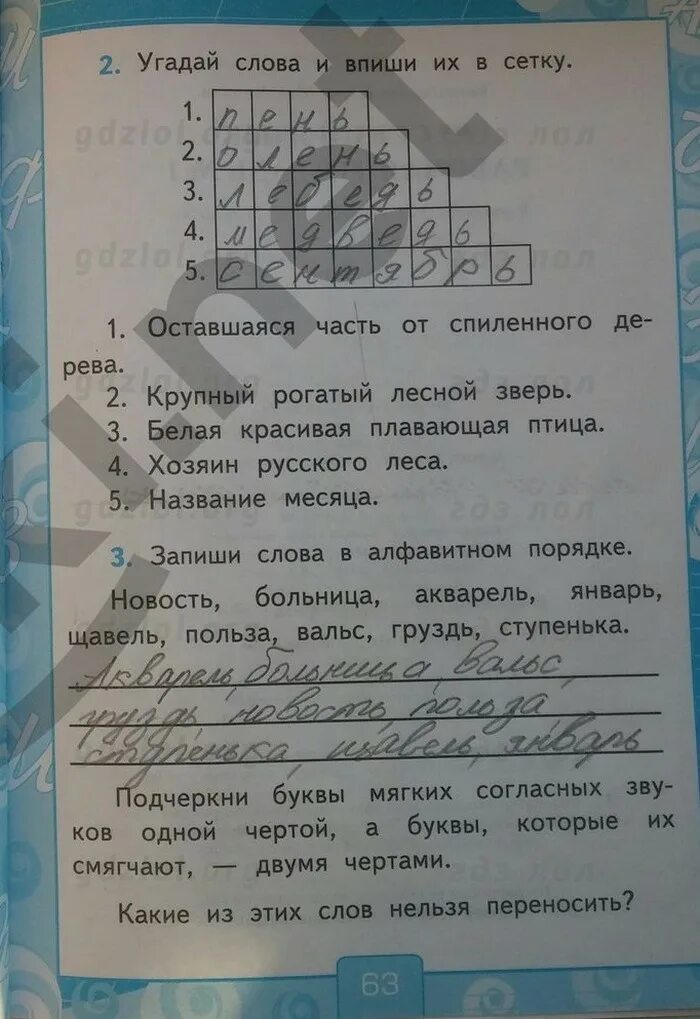 2. Угадай слова и впиши их в сетку.
1. пень
2. олень
3. лебедь
4. медведь
5. сентябрь
1. Оставшаяся часть от спиленного де-
рева.
2. Крупный рогатый лесной зверь.
3. Белая красивая плавающая птица.
4. Хозяин русского леса.
5. Название месяца.
3. Запиши слова в алфавитном порядке.
Новость, больница, акварель, январь,
щавель, польза, вальс, груздь, ступенька.
Акварель, больница, вальс,
груздь, новость, польза
ступенька, щавель, январь
Подчеркни буквы мягких согласных зву-
ков одной чертой, а буквы, которые их
смягчают, — двумя чертами.
Какие из этих слов нельзя переносить?
63